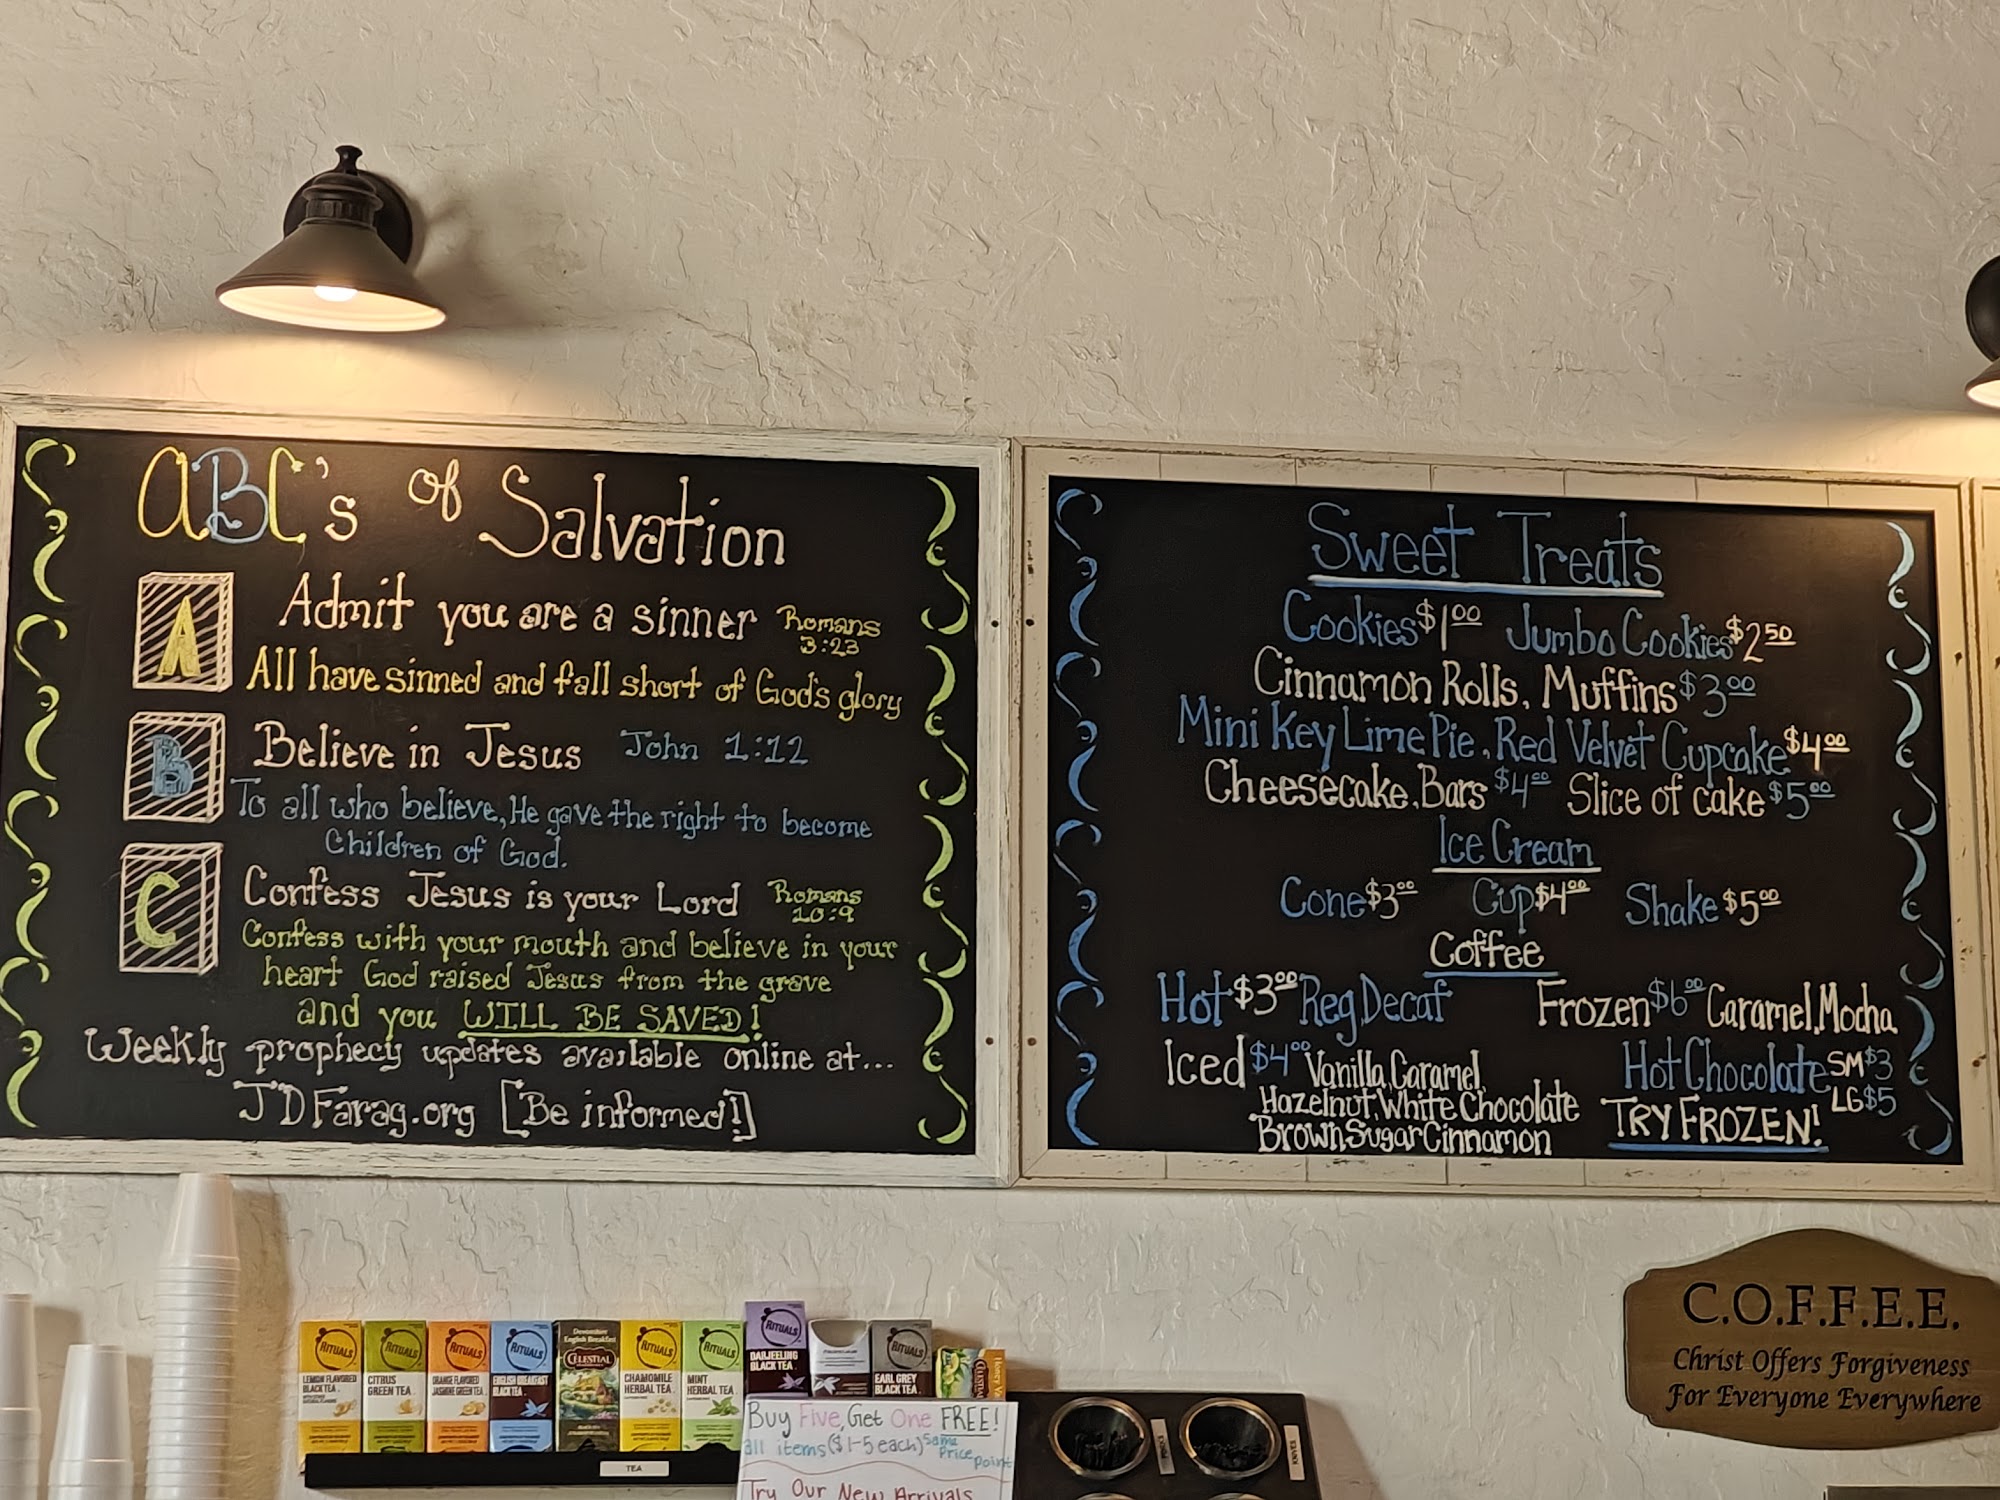 ABC's of Salvation
A
Admit you are a sinner Romans 3:23
All have sinned and fall short of God's glory
B
Believe in Jesus John 1:12
To all who believe, He gave the right to become
Children of God.
C
Confess Jesus is your Lord Romans 10:9
Confess with your mouth and believe in your
heart God raised Jesus from the grave
and you WILL BE SAVED!
Weekly prophecy updates available online at...
JDFarag.org [Be informed!]
Sweet Treats
Cookies $1.00 Jumbo Cookies $2.50
Cinnamon Rolls, Muffins $3.00
Mini Key Lime Pie, Red Velvet Cupcake $4.00
Cheesecake, Bars $4.00 Slice of cake $5.00
Ice Cream
Cone $3.00 Cup $4.00 Shake $5.00
Coffee
Hot $3.00 Reg, Decaf Frozen $6.00 Caramel, Mocha
Iced $4.00 Vanilla, Caramel,
Hazelnut, White Chocolate
Brown Sugar Cinnamon
Hot Chocolate SM $3
LG $5
TRY FROZEN!
C.O.F.F.E.E.
Christ Offers Forgiveness
For Everyone Everywhere
RITUALS
LEMON FLAVORED
BLACK TEA
RITUALS
CITRUS
GREEN TEA
RITUALS
ORANGE FLAVORED
JASMINE GREEN TEA
RITUALS
ENGLISH BREAKFAST
BLACK TEA
English Breakfast
CELESTIAL
RITUALS
CHAMOMILE
HERBAL TEA
RITUALS
MINT
HERBAL TEA
RITUALS
DARJEELING
BLACK TEA
RITUALS
EARL GREY
BLACK TEA
CELESTIAL
TEA
Buy Five, Get One FREE!
all items ($1-5 each) same price point
Try Our New Arrivals
KNIVES